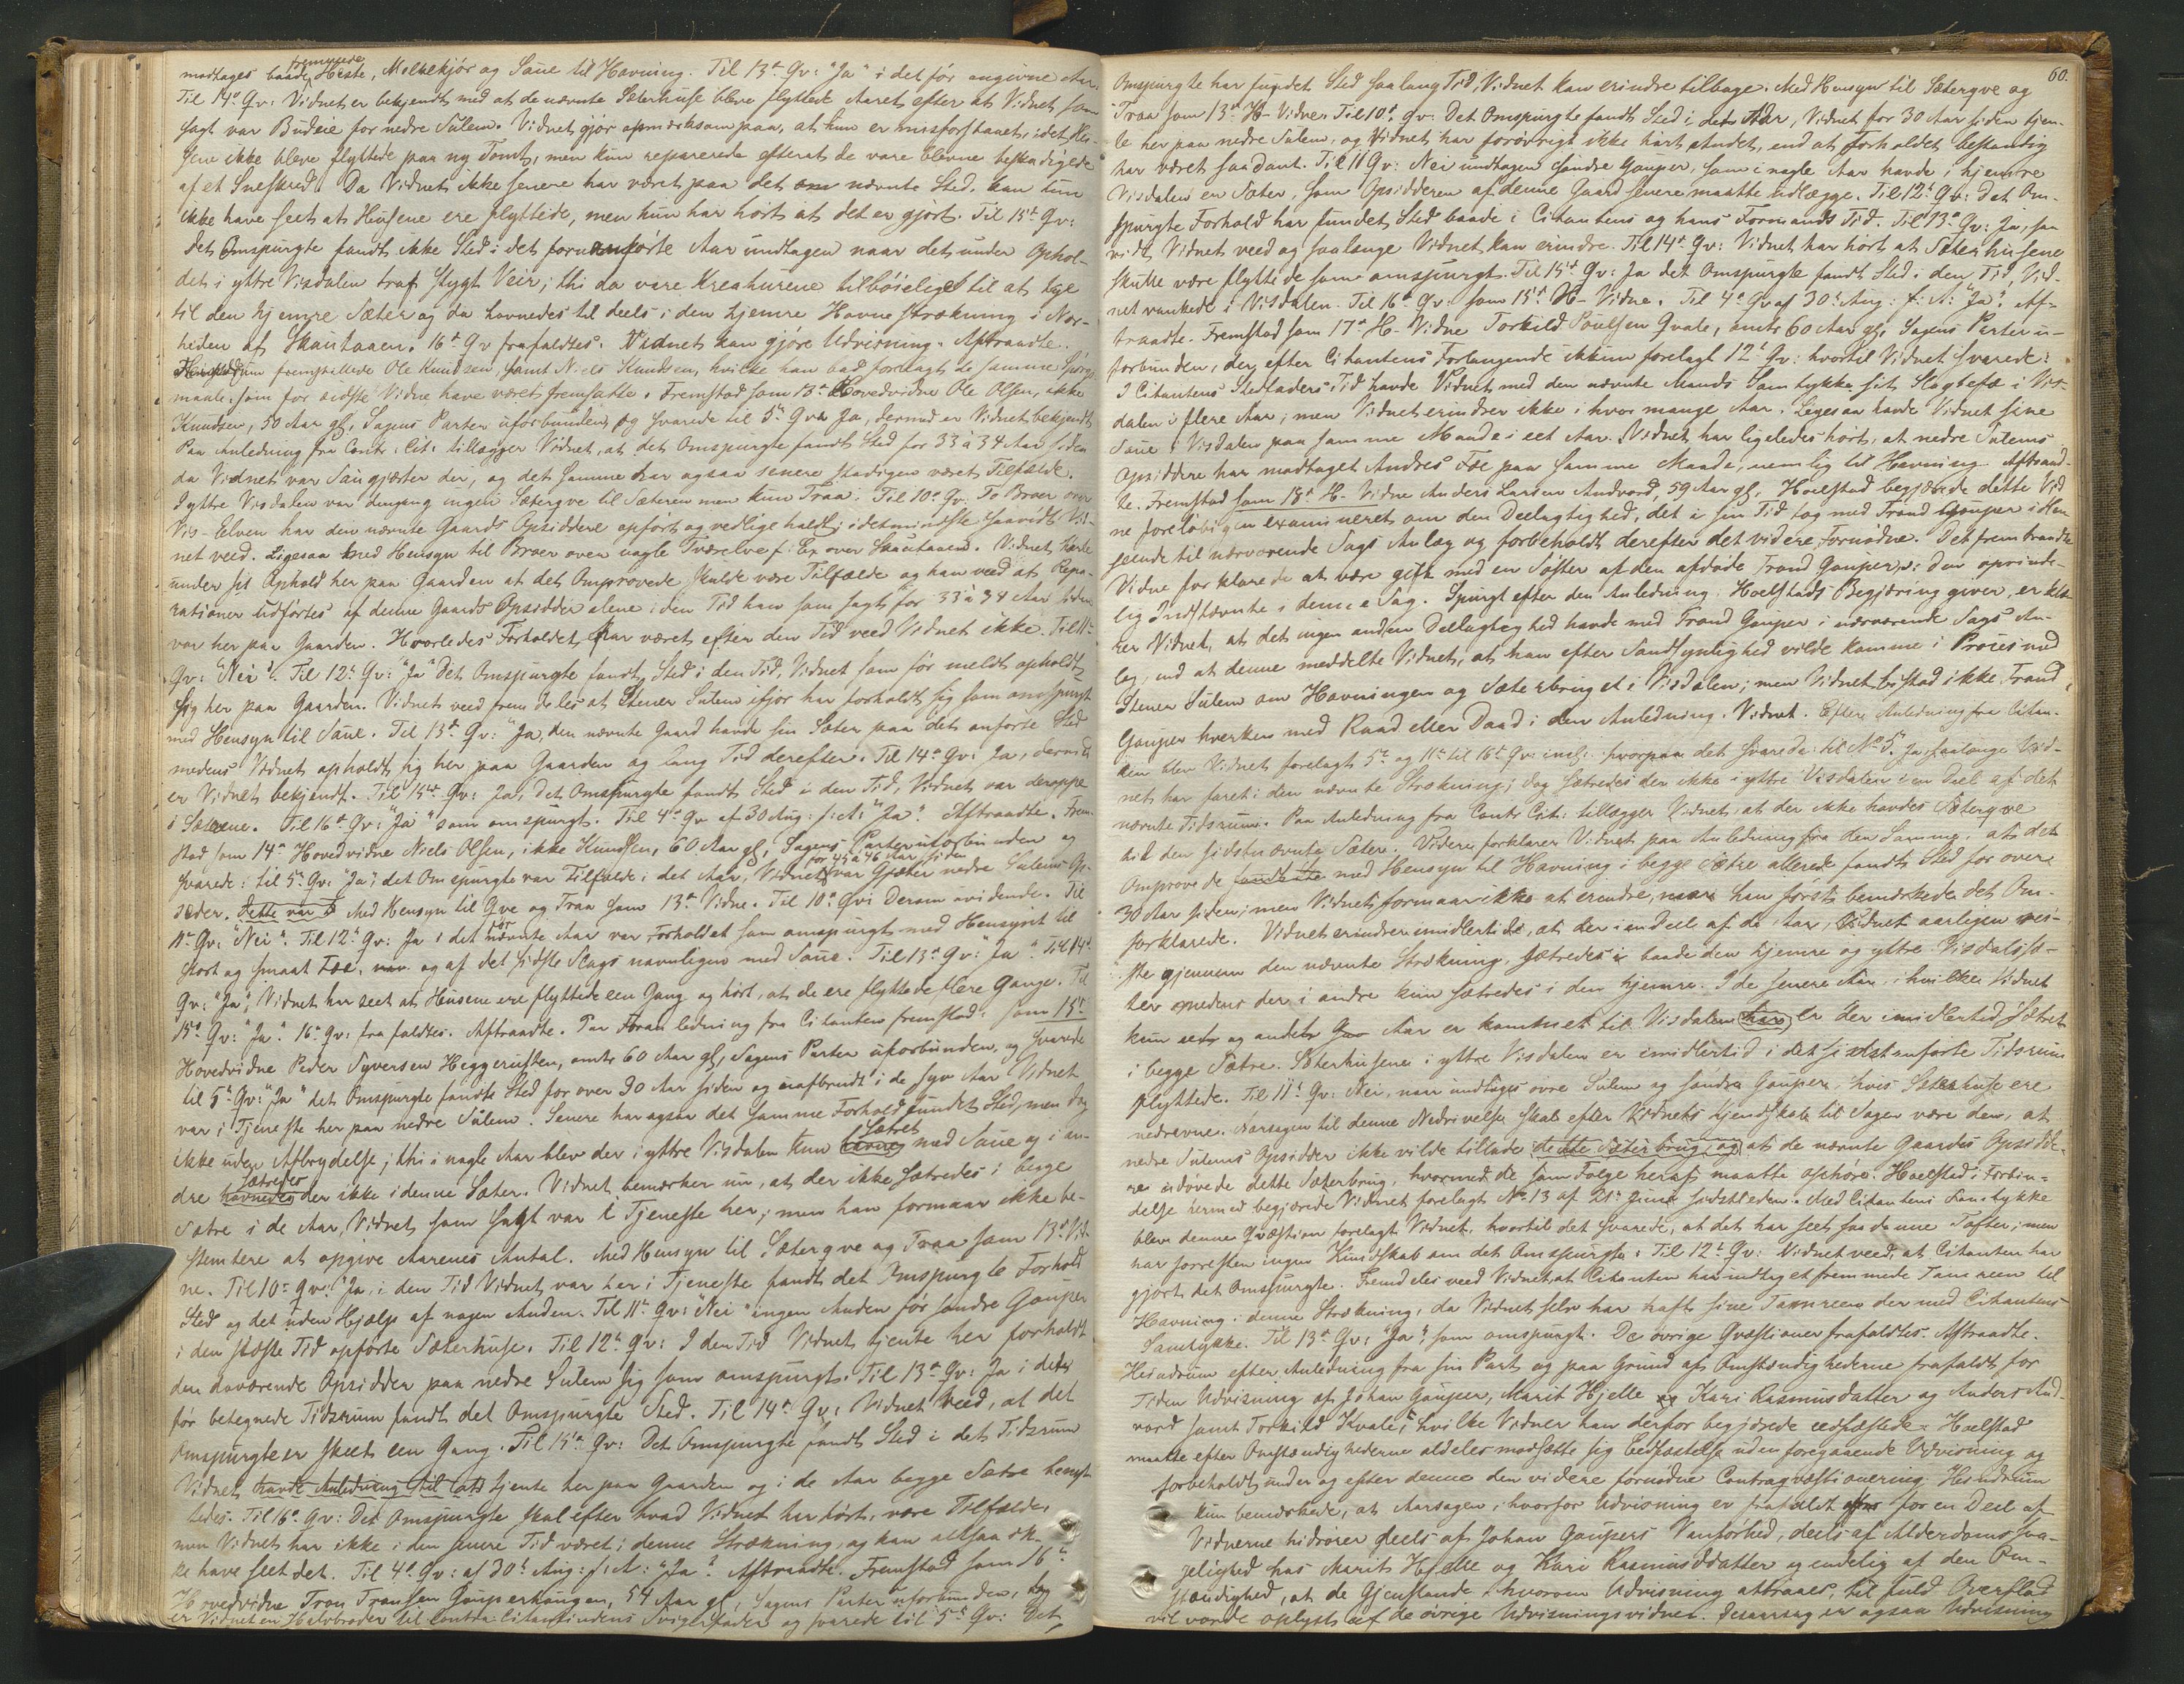 modtages baade fremmede Heste, Melkekjør og Saue til Havning. Til 13de Qv: "Ja" i det før angivne Aar.
Til 14de Qv: Vidnet er bekjendt med at de nævnte Sæterhuse bleve flyttede Aaret efter at Vidnet som
sagt var Budeie for nedre Sulem. Vidnet gjør opmærksom paa, at hun er misforstaaet, idet Hu-
sene ikke bleve flyttede paa ny Tomt, men kun reparerede efterat de vare blevne beskadigede
af et Sneskred. Da Vidnet ikke senere har været paa det om nævnte Sted, kan hun
ikke have seet at Husene ere flyttede, men hun har hørt at det er gjort. Til 15de Qv:
Det Omspurgte fandt ikke Sted i det foran anførte Aar undtagen naar det under Ophol-
det i yttre Visdalen traf stygt Veir; thi da vare Kreaturene tilbøielige til at tye
til den hjemre Sæter og da havnedes til deels i den hjemre Havnestrækning i Nær-
heden af Skautaaen. 16de Qv frafaldtes. Vidnet kan gjøre Udvisning. Aftraadte.
Heindrum fremstillede Ole Knudsen, samt Niels Knudsen, hvilke han bad forelagt de samme Spørgs-
maale som for sidste Vidne have været fremsatte. Fremstod som 13de Hovedvidne Ole Olsen, ikke
Knudsen, 50 Aar gl, Sagens Parter uforbunden, og svarede til 5te Qv: Ja, dermed er Vidnet bekjendt
Paa Anledning fra Contr. Cit. tillægger Vidnet, at det Omspurgte fandt Sted for 33 à 34 Aar siden
da Vidnet var Saugjæter der, og det Samme har ogsaa senere stadigen været Tilfælde.
I yttre Visdalen var dengang ingen Sætergve til Sæteren men kun Traa. Til 10de Qv: To Broer over
Vis-Elven har den nævnte Gaards Opsiddere opført og vedligeholdt; idetmindste saavidt Vid-
net veed. Ligesaa med Hensyn til Broer over nogle Tværelve f: Ex over Skautaaen. Vidnet hørte
under sit Ophold her paa Gaarden at det Omprøvede skulde være Tilfælde og han veed at Repa-
rationer udførtes af denne Gaards Opsidder alene i den Tid han som sagt for 33 à 34 Aar siden
var her paa Gaarden. Hvorledes Forholdet har været efter den Tid veed Vidnet ikke. Til 11te
Qv: "Nei". Til 12te Qv: "Ja" Det Omspurgte fandt Sted i den Tid, Vidnet som før meldt opholdt
sig her paa Gaarden. Vidnet veed fremdeles at Stener Sulem ifjor har forholdt sig som omspurgt
med Hensyn til Saue. Til 13de Qv: "Ja, den nævnte Gaard havde sin Sæter paa det anførte Sted
medens Vidnet opholdt sig her paa Gaarden og lang Tid derefter. Til 14de Qv: Ja, dermed
er Vidnet bekjendt. Til 15de Qv: Ja, det Omspurgte fandt Sted i den Tid, Vidnet var deroppe
i Sæterne. Til 16de Qv: "Ja" som omspurgt. Til 4de Qv af 30 Aug: f: A: "Ja". Aftraadte. Frem-
stod som 14de Hovedvidne Niels Olsen, ikke Knudsen, 60 Aar gl, Sagens Parter uforbunden og
svarede: til 5te Qv: "Ja", det Omspurgte var Tilfælde i det Aar, Vidnet for 45 à 46 Aar siden var Gjæter nedre Sulems Op-
sidder. Dette var i Med Hensyn til Qve og Traa som 13de Vidne. Til 10de Qv: Derom uvidende. Til
11te Qv: "Nei". Til 12te Qv: Ja i det før nævnte Aar var Forholdet som omspurgt med Hensynet til
stort og smaat Fæ, nav og af det sidste Slags navnligen med Saue. Til 13de Qv: "Ja". Til 14de
Qv: "Ja", Vidnet har seet at Husene ere flyttede een Gang og hørt, at de ere flyttede flere Gange. Til
15de Qv: "Ja". 16de Qv: frafaldtes. Aftraadte. Paa Foranledning fra Citanten fremstod som 15de
Hovedvidne Peder Syversen Heggerusten, omtr 60 Aar gl, Sagens Parter uforbunden, og svarede
til 5te Qv: "Ja" det Omspurgte fandt Sted for over 30 Aar siden og uafbrudt i de syv Aar Vidnet
var i Tjeneste her paa nedre Sulem. Senere har ogsaa det samme Forhold fundet Sted, men dog
ikke uden Afbrydelse; thi i nogle Aar blev der i yttre Visdalen kun havnet sætret med Saue og i an-
dre havnedes sætredes der ikke i denne Sæter. Vidnet bemærker nu, at der ikke sætredes i begge
Sætre i de Aar, Vidnet som sagt var i Tjeneste her; men han formaar ikke be-
stemtere at opgive Aarenes Antal. Med Hensyn til Sætergve og Traa som 13de Vid-
ne. Til 10de Qv: "Ja, i den Tid Vidnet var her i Tjeneste fandt det Omspurgte Forhold
Sted og det uden Hjælp af nogen Anden. Til 11te Qv: "Nei" ingen Anden før søndre Gauper
i den sidste Tid opførte Sæterhuse. Til 12te Qv: I den Tid Vidnet tjente her forholdt
den daværende Opsidder paa nedre Sulem sig som omspurgt. Til 13de Qv: Ja i det
før betegnede Tidsrum fandt det Omspurgte Sted. Til 14de Qv: Vidnet veed, at det
Omspurgte er skeet een Gang. Til 15de Qv: Det Omspurgte fandt Sted i det Tidsrum
Vidnet havde Anledning til at tjente her paa Gaarden og i de Aar begge Sætre benyt-
tedes. Til 16de Qv: Det Omspurgte skal efter hvad Vidnet har hørt, være Tilfælde,
men Vidnet har ikke i den senere Tid været i denne Strækning, og kan altsaa ik-
ke have seet det. Til 4de Qv: af 30te Aug: f: A: "Ja". Aftraadte. Fremstod som 16de
Hovedvidne Tron Tronsen Gauperhaugen, 54 Aar gl, Sagens Parter uforbunden, dog
er Vidnet en Halvbroder til Contra-Citantindens Svigerfader og svarede til 5te Qv: Det
60.
Omspurgte har fundet Sted saalang Tid, Vidnet kan erindre tilbage. Med Hensyn til Sætergve og
Traa som 13de H-Vidne. Til 10de Qv: Det Omspurgte fandt Sted i det Aar, Vidnet for 30 Aar siden tjen-
te her paa nedre Sulem, og Vidnet har forøvrigt ikke hørt Andet, end at Forholdet bestandig
har været saadant. Til 11 Qv: Nei undtagen søndre Gauper, som i nogle Aar havde i hjemre
Visdalen en Sæter, som Opsidderen af denne Gaard senere maatte nedlægge. Til 12te Qv: Det Om-
spurgte Forhold har fundet Sted baade i Citantens og hans Formands Tid. Til 13de Qv: Ja, saa
vidt Vidnet veed og saalænge Vidnet kan erindre. Til 14de Qv: Vidnet har hørt at Sæterhusene
skulle være flyttede som omspurgt. Til 15de Qv: Ja det Omspurgte fandt Sted i den Tid, Vid-
net vankede i Visdalen. Til 16de Qv: som 15de H-Vidne. Til 4de Qv af 30te Aug: f: A: "Ja". Af-
traadte. Fremstod som 17de H-Vidne Torkild Poulsen Qvale, omtr 60 Aar gl, Sagens Parter u-
forbunden, der efter Citantens Forlangende ikkun forelagt 12te Qv: hvortil Vidnet svarede:
I Citantens Stedfaders Tid havde Vidnet med den nævnte Mands Samtykke sit Slagtefæ i Vis-
dalen i flere Aar; men Vidnet erindrer ikke i hvor mange Aar. Ligesaa havde Vidnet sine
Saue i Visdalen paa samme Maade i eet Aar. Vidnet har ligeledes hørt, at nedre Sulems
Opsiddere har modtaget Andres Fæ paa samme Maade, nemlig til Havning. Aftraad-
te. Fremstod som 18de H-Vidne Anders Larsen Andvord, 59 Aar gl. Hoelstad begjærede dette Vid-
ne foreløbigen examineret om den Deelagtighed, det i sin Tid tog med Trond Gauper i Hen-
seende til nærværende Sags Anlæg og forbeholdt derefter det videre Fornødne. Det fremtraadte
Vidne forklarede at være gift med en Søster af den afdøde Trond Gauper; den oprinde-
lig Indstævnte i denne Sag. Spurgt efter den Anledning Hoelstads Begjæring giver, erklæ-
rer Vidnet, at det ingen anden Deelagtighed havde med Trond Gauper i nærværende Sags An-
læg, end at denne meddelte Vidnet, at han efter Sandsynlighed vilde komme i Proces med
Stener Sulem om Havningen og Sæterbruget i Visdalen; men Vidnet bistod ikke Trond
Gauper hverken med Raad eller Daad i den Anledning. Vidnet. Efter Anledning fra Citan-
ten blev Vidnet forelagt 5te og 11te til 16de Qv: incl: hvorpaa det svarede: til No 5. Ja, saalænge Vid-
net har faret i den nævnte Strækning; dog sætredes der ikke i yttre Visdalen i en Deel af det
nævnte Tidsrum. Paa Anledning fra Contr. Cit: tillægger Vidnet, at der ikke havdes Sætergve
til den sidstnævnte Sæter. Videre forklarer Vidnet paa Anledning fra den Samme, at det
Omprøvede fandt ite med Hensyn til Havning i begge Sætre allerede fandt Sted for over
30 Aar siden; men Vidnet formaar ikke at erindre, naar han først bemærkede det Om-
forklarede. Vidnet erindrer imidlertid, at der i en deel af de Aar, Vidnet aarligen rei-
ste gjennem den nævnte Strækning, sætredes i baade den hjemre og yttre Visdalssæ-
ter medens der i andre kun sætredes i den hjemre. I de senere Aar, i hvilke Vidnet
kun eet og andet Aar er kommet til Visdalen har er der imidlertid sætret
i begge Sætre. Sæterhusene i yttre Visdalen er imidlertid i det sidstanførte Tidsrum
flyttede. Til 11te Qv: Nei, naar undtages øvre Sulem og søndre Gauper, hvis Sæterhuse ere
nedrevne. Aarsagen til denne Nedrivelse skal efter Vidnets Kjendskab til Sagen være den, at
nedre Sulems Opsidder ikke vilde tillade dette Sæterbrug, og at de nævnte Gaardes Opsidde-
re udøvede dette Sæterbrug, hvormed de som Følge heraf maatte ophøre. Hoelstad i Forbin-
delse hermed begjærede Vidnet forelagt No 13 af 21de Juni sidstleden. Med Citantens Samtykke
blev denne Qvæstion forelagt Vidnet, hvortil det svarede, at det har seet saadanne Tofter; men
har forresten ingen Kundskab om det Omspurgte. Til 12te Qv: Vidnet veed, at Citanten har
gjort det Omspurgte. Fremdeles veed Vidnet at Citanten har indtaget fremmede Tamreen til
Havning i denne Strækning, da Vidnet selv har haft sine Tamreen der med Citantens
Samtykke. Til 13de Qv: "Ja", som omspurgt. De øvrige Qvæstioner frafaldtes. Aftraadte.
Heindrum efter Anledning fra sin Part og paa Grund af Omstændighederne frafaldt for
Tiden Udvisning af Johan Gauper, Marit Hjelle og Kari Rasmusdatter og Anders And-
vord samt Torkild Kvale, hvilke Vidner han derfor begjærede eedfæstede. Hoelstad
maatte efter Omstændighederne aldeles modsætte sig Eedfæstelse uden foregaaende Udvisning og
forbeholdt under og efter denne den videre fornødne Contraqvæstionering. Heindrum
kun bemærkede, at Aarsagen, hvorfor Udvisning er frafaldt for en Deel af
Vidnerne hidrører deels af Johan Gaupers Vanførhed, deels af Alderdomssva-
gelighed hos Marit Hjelle og Kari Rasmusdatter og endelig af den Om-
stændighed, at de Gjenstande hvorom Udvisning attraaes, til fuld Overflød
vil vorde oplyst af de øvrige Udvisningsvidner. Desaarsag er ogsaa Udvisning